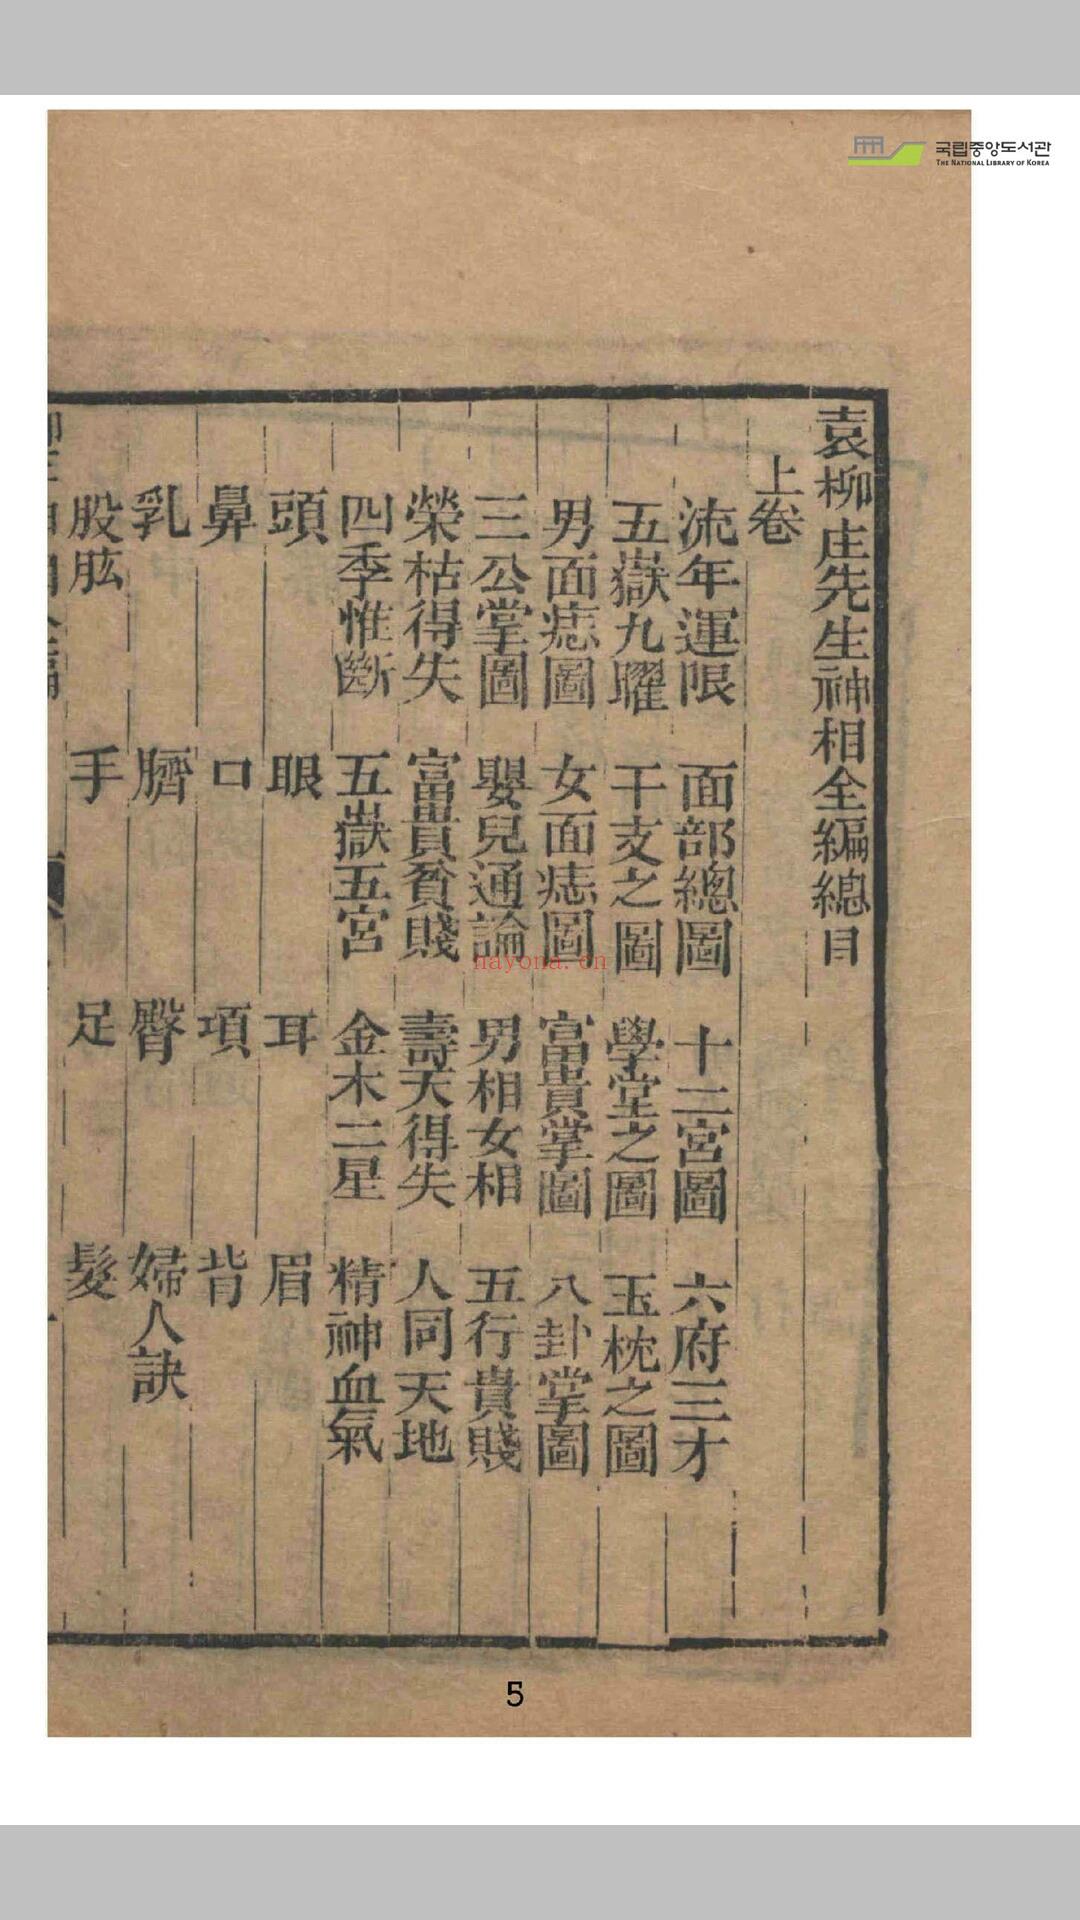 국립중앙도서관
THE NATIONAL LIBRARY OF KOREA
袁柳庄先生神相全編總目
上卷
流年運限 面部總圖 十二宮圖 六府三才
五嶽九曜 干支之圖 學堂之圖 玉枕之圖
男面痣圖 女面痣圖 富貴掌圖 八卦掌圖
三公掌圖 嬰兒通論 男相女相 五行貴賤
榮枯得失 富貴貧賤 壽夭得失 人同天地
四季惟斷 五嶽五宮 金木二星 精神血氣
頭 眼 耳 眉
鼻 口 項 背
乳 臍 臀 婦人訣
股肱 手 足 髮
nayona.cn
5